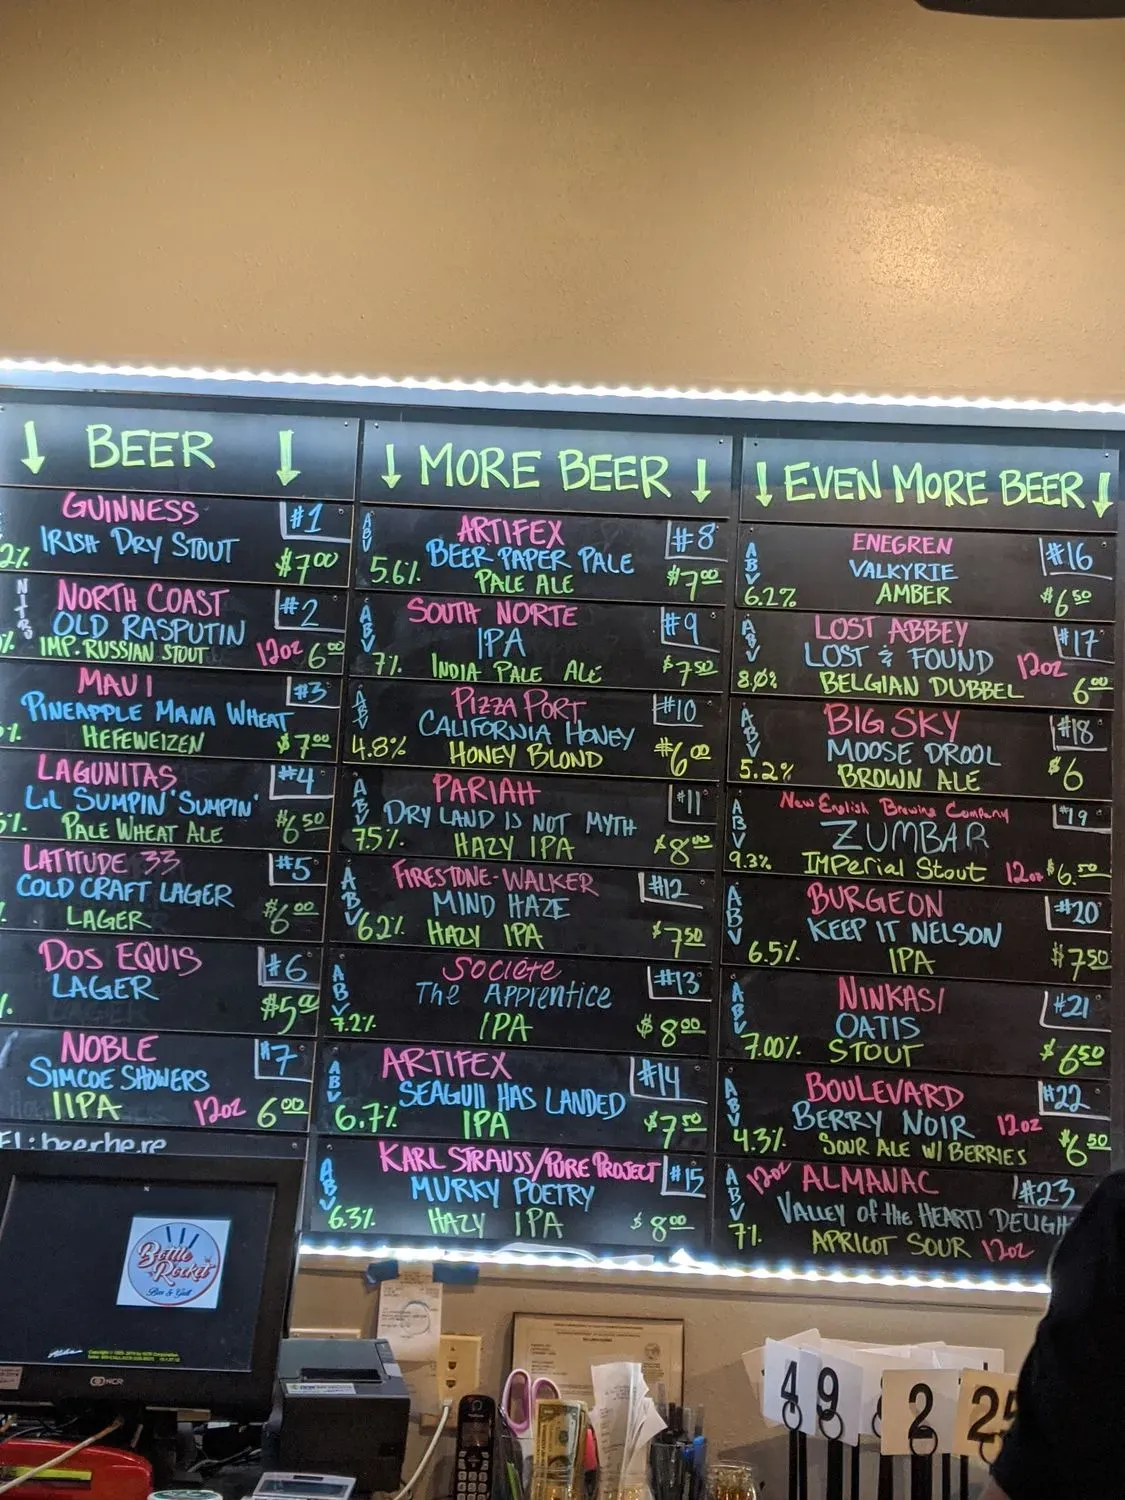 ↓ BEER ↓
GUINNESS #1
IRISH DRY STOUT
2% $7.00
NITRO NORTH COAST #2
OLD RASPUTIN
% IMP. RUSSIAN STOUT 12oz 6.00
MAUI #3
PINEAPPLE MANA WHEAT
% HEFEWEIZEN $7.00
LAGUNITAS #4
LIL SUMPIN' SUMPIN'
% PALE WHEAT ALE $6.50
LATITUDE 33 #5
COLD CRAFT LAGER
LAGER $6.00
DOS EQUIS #6
LAGER
% $5.00
NOBLE #7
SIMCOE SHOWERS
IIPA 12oz 6.00
beerhere
↓ MORE BEER ↓
ABV ARTIFEX #8
BEER PAPER PALE
5.6% PALE ALE $7.00
ABV SOUTH NORTE #9
IPA
7% INDIA PALE ALE $7.50
ABV PIZZA PORT #10
CALIFORNIA HONEY
4.8% HONEY BLOND $6.00
ABV PARIAH #11
DRY LAND IS NOT MYTH
7.5% HAZY IPA $8.00
ABV FIRESTONE-WALKER #12
MIND HAZE
6.2% HAZY IPA $7.50
ABV SOCIETE #13
The Apprentice
7.2% IPA $8.00
ABV ARTIFEX #14
SEAGUll HAS LANDED
6.7% IPA $7.50
ABV KARL STRAUSS/PURE PROJECT #15
MURKY POETRY
6.3% HAZY IPA $8.00
↓ EVEN MORE BEER ↓
ABV ENEGREN #16
VALKYRIE
6.2% AMBER $6.50
ABV LOST ABBEY #17
LOST & FOUND 12oz
8.0% BELGIAN DUBBEL 6.00
ABV BIG SKY #18
MOOSE DROOL
5.2% BROWN ALE $6
ABV New English Brewing Company #19
ZUMBAR
9.3% IMPerial Stout 12oz $6.50
ABV BURGEON #20
KEEP IT NELSON
6.5% IPA $7.50
ABV NINKASI #21
OATIS
7.00% STOUT $6.50
ABV BOULEVARD #22
BERRY NOIR 12oz
4.3% SOUR ALE W/ BERRIES $6.50
ABV 12oz ALMANAC #23
VAlley of the HEARTS DELIGH
7% APRICOT SOUR 12oz
Bottle
Rocket
Bar & Grill
NCR
4 9 2 25